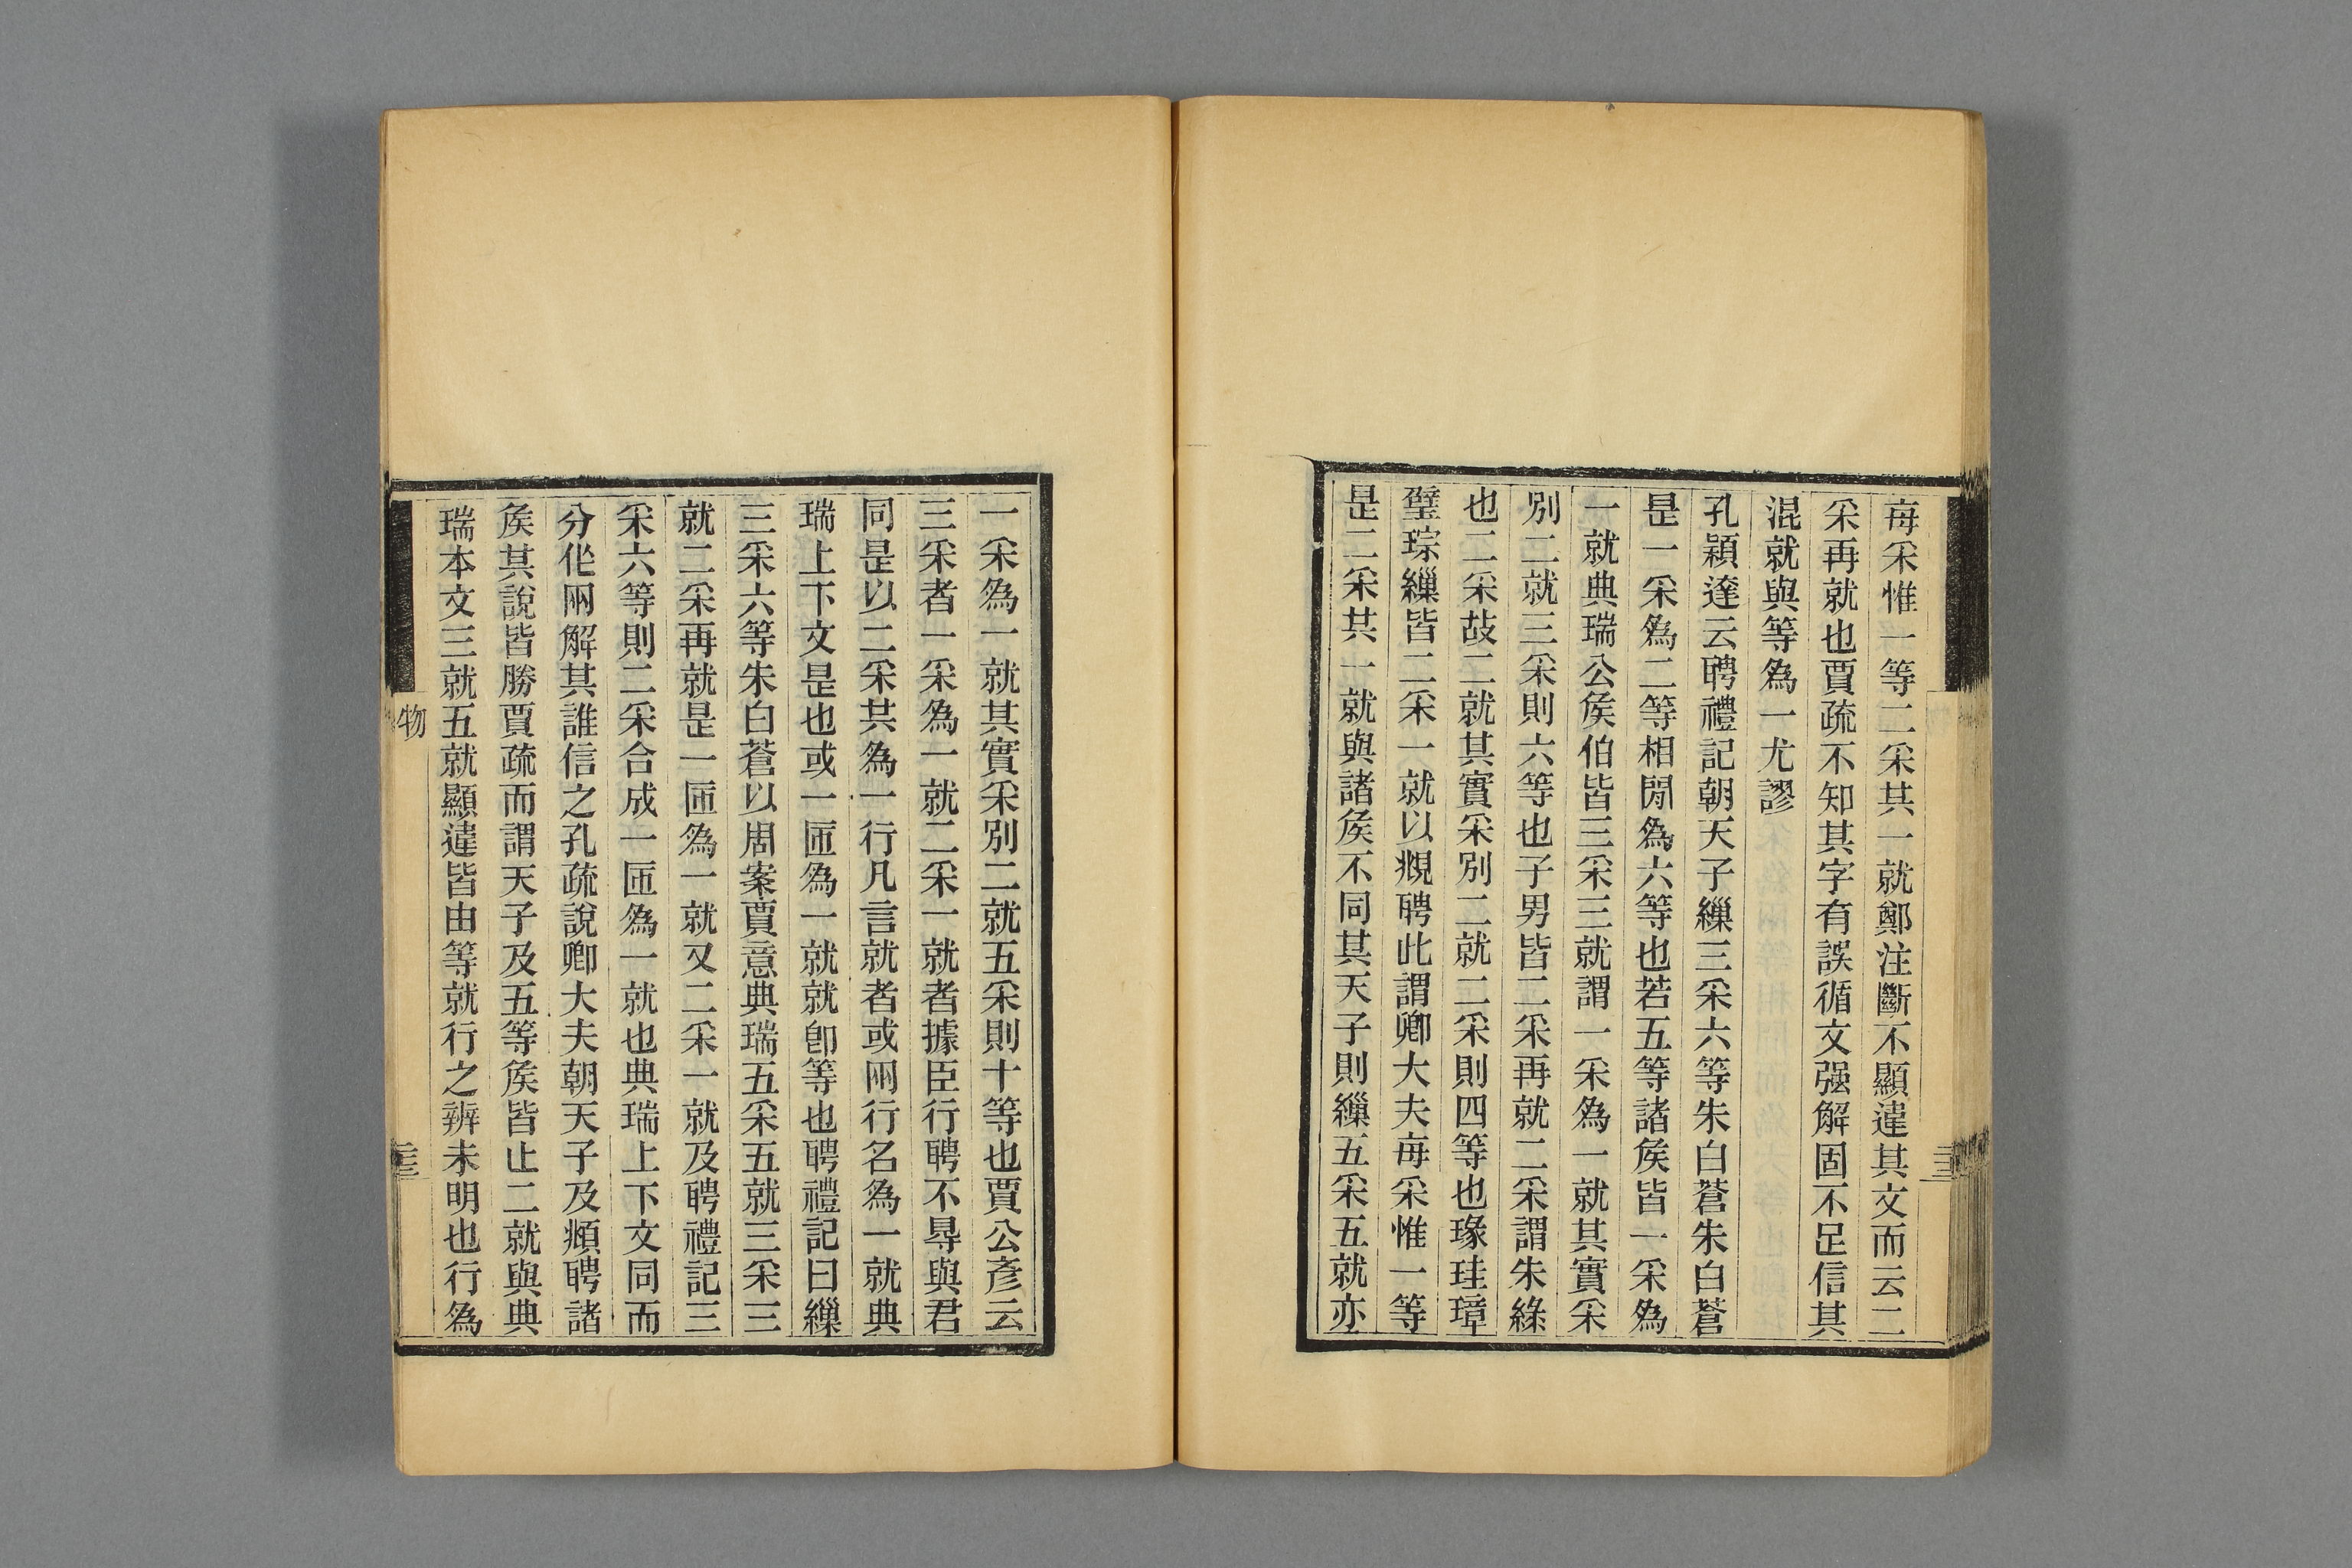 每采惟一等二采共一就鄭注斷不顯違其文而云二
采再就也賈疏不知其字有誤循文强解固不足信其
混就與等為一尤謬
孔穎達云聘禮記朝天子繅三采六等朱白蒼朱白蒼
是一采為二等相閒為六等也若五等諸矦皆一采為
一就典瑞公矦伯皆三采三就謂一采為一就其實采
別二就三采則六等也子男皆二采再就二采謂朱綠
也二采故二就其實采別二就二采則四等也瑑珪璋
璧琮繅皆二采一就以覜聘此謂卿大夫每采惟一等
是二采共一就與諸矦不同其天子則繅五采五就亦
一采為一就其實采別二就五采則十等也賈公彥云
三采者一采為一就二采一就者據臣行聘不㝵與君
同是以二采共為一行凡言就者或兩行名為一就典
瑞上下文是也或一匝為一就就卽等也聘禮記曰繅
三采六等朱白蒼以周案賈意典瑞五采五就三采三
就二采再就是一匝為一就又二采一就及聘禮記三
采六等則二采合成一匝為一就也典瑞上下文同而
分作兩解其誰信之孔疏說卿大夫朝天子及頫聘諸
矦其說皆勝賈疏而謂天子及五等矦皆止二就與典
瑞本文三就五就顯違皆由等就行之辨未明也行為
物
三